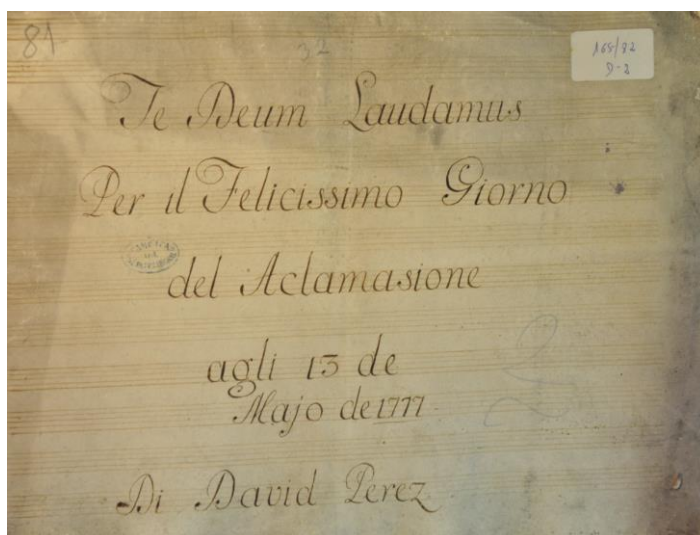 81
32
168/82
D-2
Te Deum Laudamus
Per il Felicissimo Giorno
del Aclamasione
agli 13 de
Majo de 1777
Di David Perez